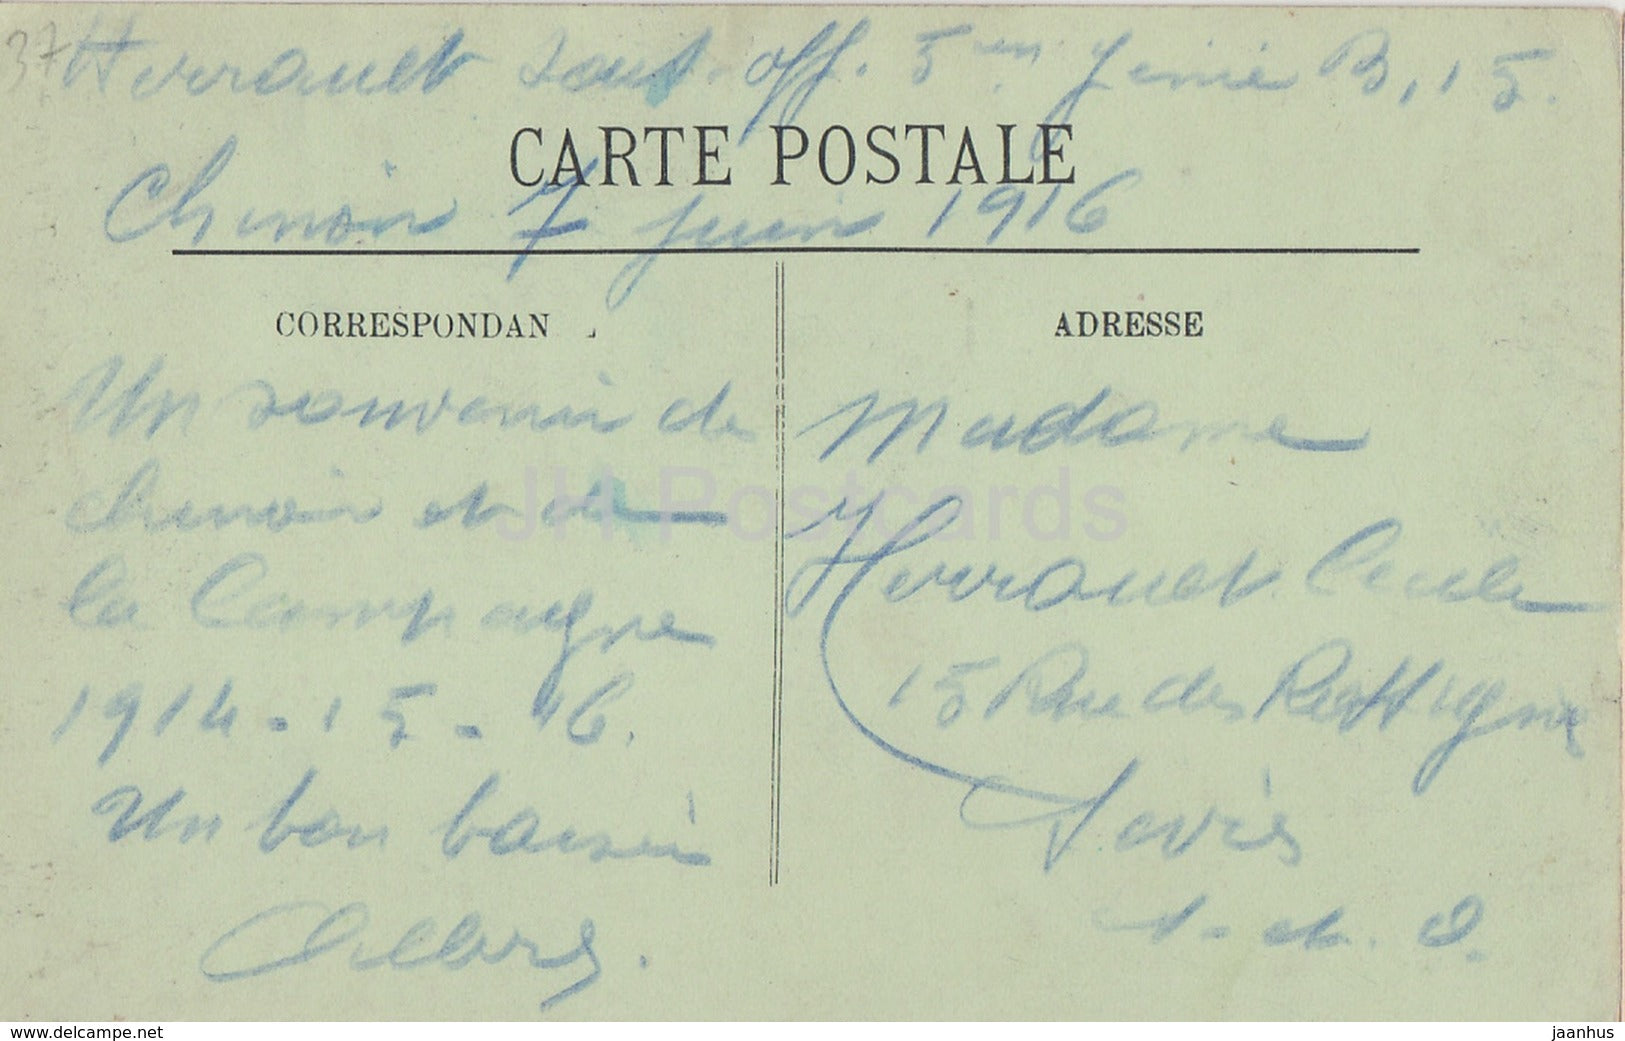 37
Herrouet sous-off. 5em Génie B, 15.
CARTE POSTALE
Chinon 7 juin 1916
CORRESPONDAN
ADRESSE
Un souvenir de
chinon et de
la Campagne
1914-15-16.
Un bon baiser
Albert.
Madame
Herrouet Cecile
15 Rue des
Sèvres
S. et. O.
JH Postcards
www.delcampe.net
jaanhus